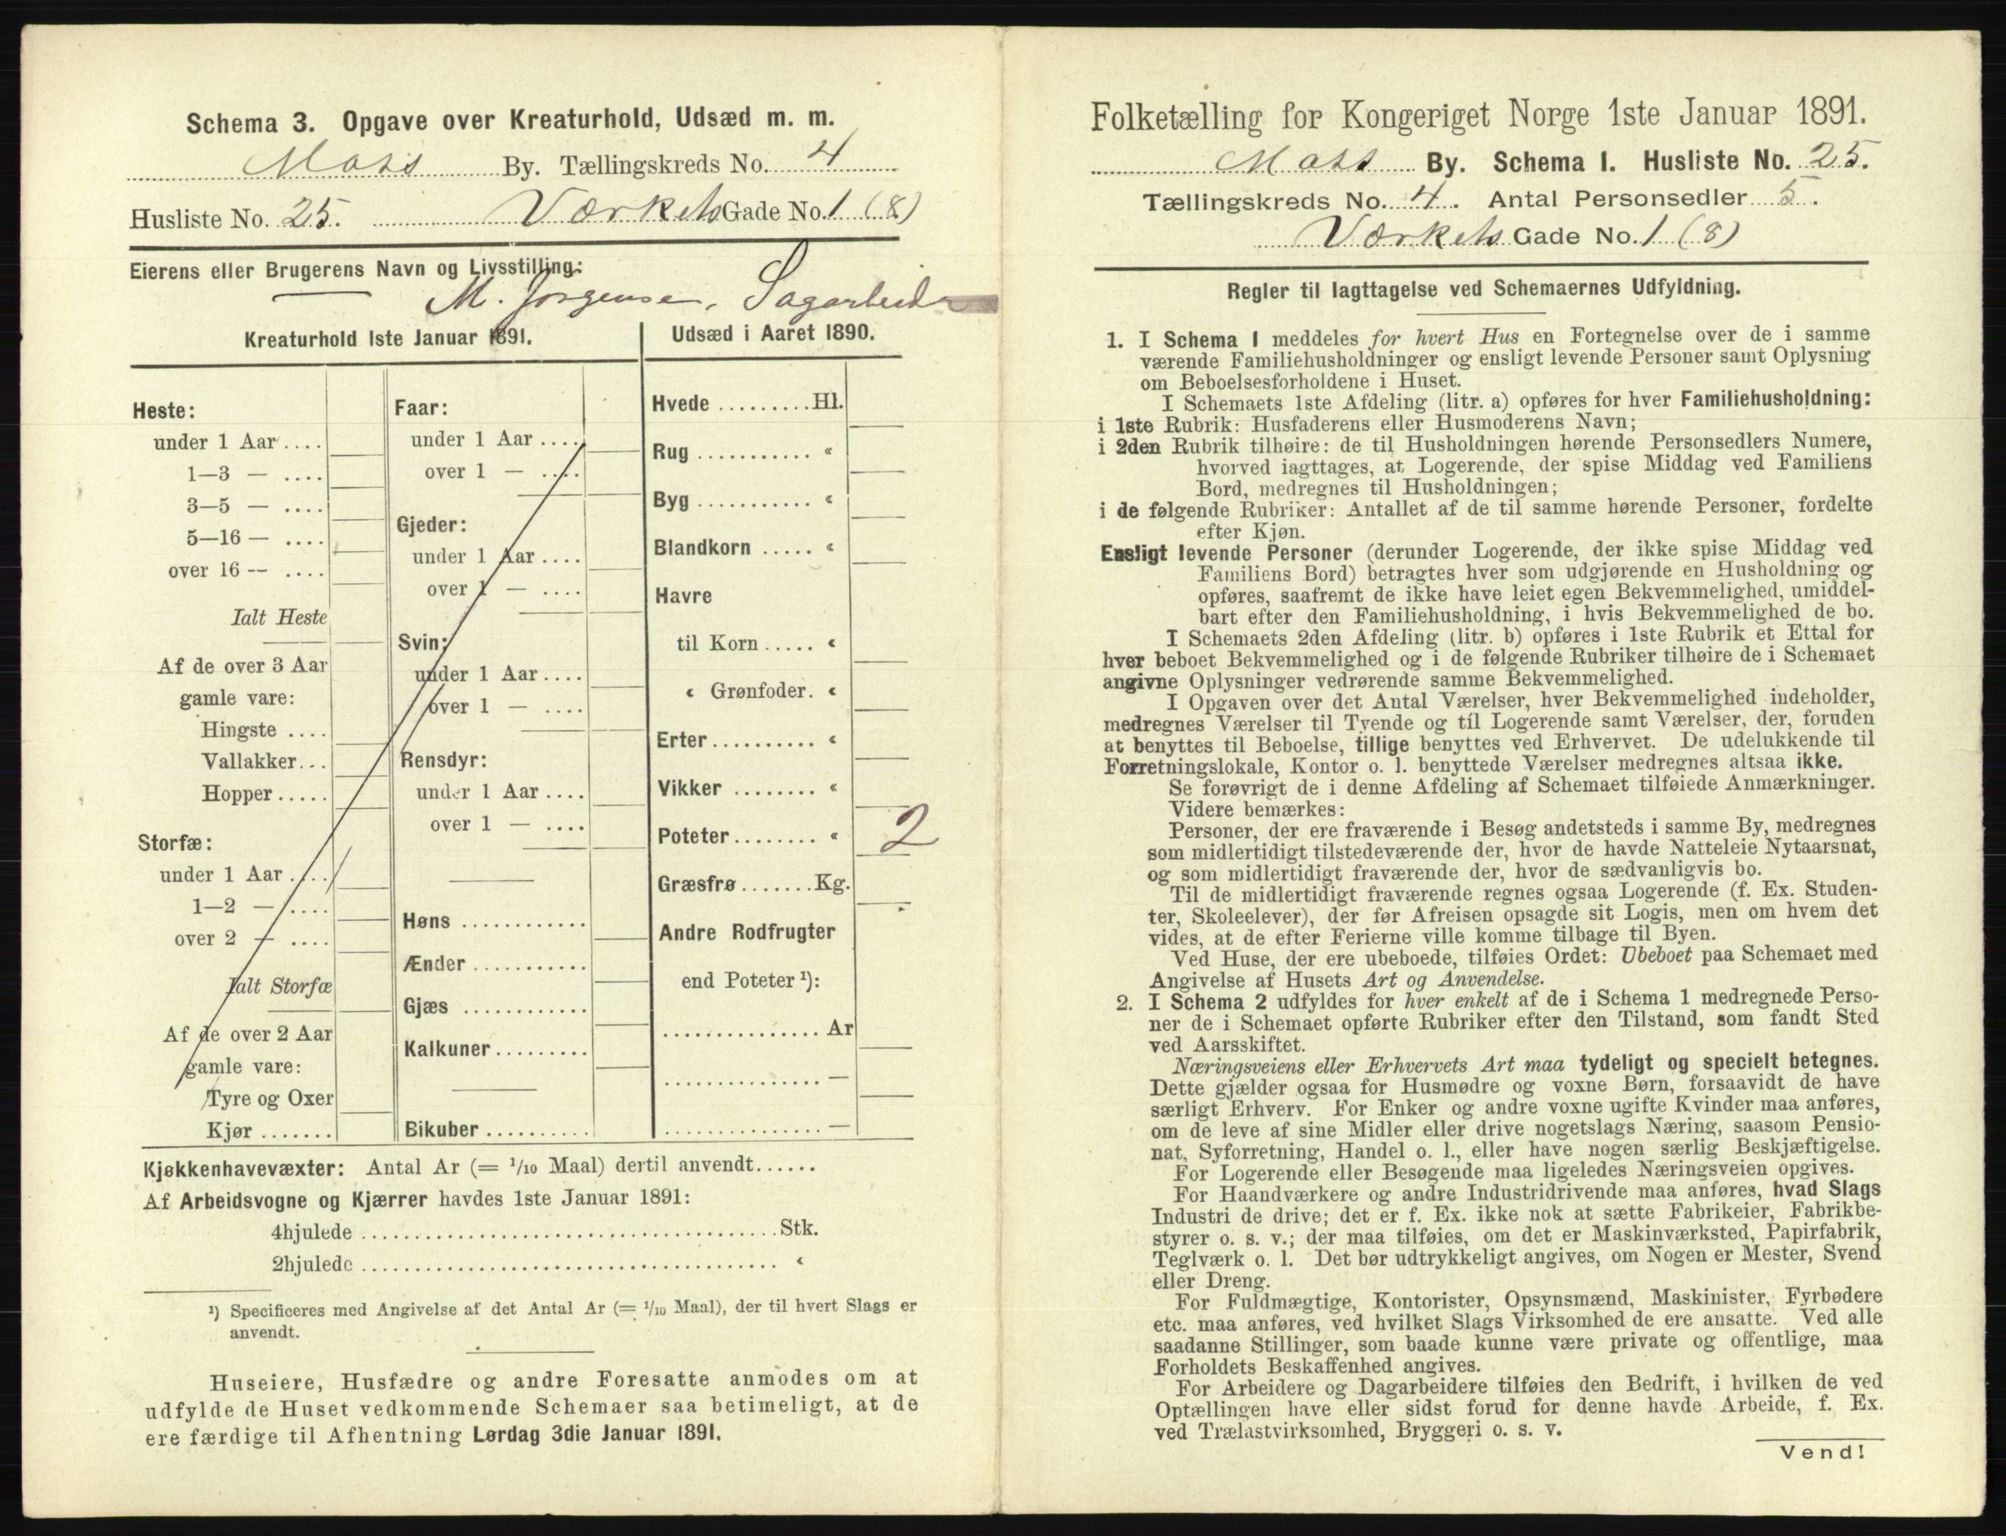 Schema 3. Opgave over Kreaturhold, Udsæd m. m.
Moss By. Tællingskreds No. 4
Husliste No. 25. Værkets Gade No. 1 (8)
Eierens eller Brugerens Navn og Livsstilling:
M. Jørgensen, Sagarbeider
Kreaturhold 1ste Januar 1891.
Heste:
under 1 Aar ....
1—3 — ....
3—5 — ....
5—16 — ....
over 16 -- ....
Ialt Heste
Af de over 3 Aar
gamle vare:
Hingste ....
Vallakker...
Hopper .....
Storfæ:
under 1 Aar ....
1—2 — ....
over 2 — ....
Ialt Storfæ
Af de over 2 Aar
gamle vare:
Tyre og Oxer
Kjør .......
Faar:
under 1 Aar ....
over 1 — ....
Gjeder:
under 1 Aar ....
over 1 — ....
Svin:
under 1 Aar ....
over 1 — ....
Rensdyr:
under 1 Aar ....
over 1 — ....
Høns ............
Ænder ...........
Gjæs ............
Kalkuner.........
Bikuber ..........
Udsæd i Aaret 1890.
Hvede .........Hl.
Rug ........... «
Byg ........... «
Blandkorn ..... «
Havre
til Korn ..... «
« Grønfoder. «
Erter.......... «
Vikker ........ «
Poteter........ « 2
Græsfrø.......Kg.
Andre Rodfrugter
end Poteter ¹):
............... Ar
............... —
............... —
Kjøkkenhavevæxter: Antal Ar (= 1/10 Maal) dertil anvendt......
Af Arbeidsvogne og Kjærrer havdes 1ste Januar 1891:
4hjulede ....................................Stk.
2hjulede .................................... «
¹) Specificeres med Angivelse af det Antal Ar (= 1/10 Maal), der til hvert Slags er
anvendt.
Huseiere, Husfædre og andre Foresatte anmodes om at
udfylde de Huset vedkommende Schemaer saa betimeligt, at de
ere færdige til Afhentning Lørdag 3die Januar 1891.
Folketælling for Kongeriget Norge 1ste Januar 1891.
Moss By. Schema 1. Husliste No. 25.
Tællingskreds No. 4. Antal Personsedler 5.
Værkets Gade No. 1 (8)
Regler til Iagttagelse ved Schemaernes Udfyldning.
1. I Schema 1 meddeles for hvert Hus en Fortegnelse over de i samme
værende Familiehusholdninger og ensligt levende Personer samt Oplysning
om Beboelsesforholdene i Huset.
I Schemaets 1ste Afdeling (litr. a) opføres for hver Familiehusholdning:
i 1ste Rubrik: Husfaderens eller Husmoderens Navn;
i 2den Rubrik tilhøire: de til Husholdningen hørende Personsedlers Numere,
hvorved iagttages, at Logerende, der spise Middag ved Familiens
Bord, medregnes til Husholdningen;
i de følgende Rubriker: Antallet af de til samme hørende Personer, fordelte
efter Kjøn.
Ensligt levende Personer (derunder Logerende, der ikke spise Middag ved
Familiens Bord) betragtes hver som udgjørende en Husholdning og
opføres, saafremt de ikke have leiet egen Bekvemmelighed, umiddel-
bart efter den Familiehusholdning, i hvis Bekvemmelighed de bo.
I Schemaets 2den Afdeling (litr. b) opføres i 1ste Rubrik et Ettal for
hver beboet Bekvemmelighed og i de følgende Rubriker tilhøire de i Schemaet
angivne Oplysninger vedrørende samme Bekvemmelighed.
I Opgaven over det Antal Værelser, hver Bekvemmelighed indeholder,
medregnes Værelser til Tyende og til Logerende samt Værelser, der, foruden
at benyttes til Beboelse, tillige benyttes ved Erhvervet. De udelukkende til
Forretningslokale, Kontor o. l. benyttede Værelser medregnes altsaa ikke.
Se forøvrigt de i denne Afdeling af Schemaet tilføiede Anmærkninger.
Videre bemærkes:
Personer, der ere fraværende i Besøg andetsteds i samme By, medregnes
som midlertidigt tilstedeværende der, hvor de havde Natteleie Nytaarsnat,
og som midlertidigt fraværende der, hvor de sædvanligvis bo.
Til de midlertidigt fraværende regnes ogsaa Logerende (f. Ex. Studen-
ter, Skoleelever), der før Afreisen opsagde sit Logis, men om hvem det
vides, at de efter Ferierne ville komme tilbage til Byen.
Ved Huse, der ere ubeboede, tilføies Ordet: Ubeboet paa Schemaet med
Angivelse af Husets Art og Anvendelse.
2. I Schema 2 udfyldes for hver enkelt af de i Schema 1 medregnede Perso-
ner de i Schemaet opførte Rubriker efter den Tilstand, som fandt Sted
ved Aarsskiftet.
Næringsveiens eller Erhvervets Art maa tydeligt og specielt betegnes.
Dette gjælder ogsaa for Husmødre og voxne Børn, forsaavidt de have
særligt Erhverv. For Enker og andre voxne ugifte Kvinder maa anføres,
om de leve af sine Midler eller drive nogetslags Næring, saasom Pensio-
nat, Syforretning, Handel o. l., eller have nogen særlig Beskjæftigelse.
For Logerende eller Besøgende maa ligeledes Næringsveien opgives.
For Haandværkere og andre Industridrivende maa anføres, hvad Slags
Industri de drive; det er f. Ex. ikke nok at sætte Fabrikeier, Fabrikbe-
styrer o. s. v.; der maa tilføies, om det er Maskinværksted, Papirfabrik,
Teglværk o. l. Det bør udtrykkeligt angives, om Nogen er Mester, Svend
eller Dreng.
For Fuldmægtige, Kontorister, Opsynsmænd, Maskinister, Fyrbødere
etc. maa anføres, ved hvilket Slags Virksomhed de ere ansatte. Ved alle
saadanne Stillinger, som baade kunne være private og offentlige, maa
Forholdets Beskaffenhed angives.
For Arbeidere og Dagarbeidere tilføies den Bedrift, i hvilken de ved
Optællingen have eller sidst forud for denne havde Arbeide, f. Ex.
ved Trælastvirksomhed, Bryggeri o. s. v.
Vend!